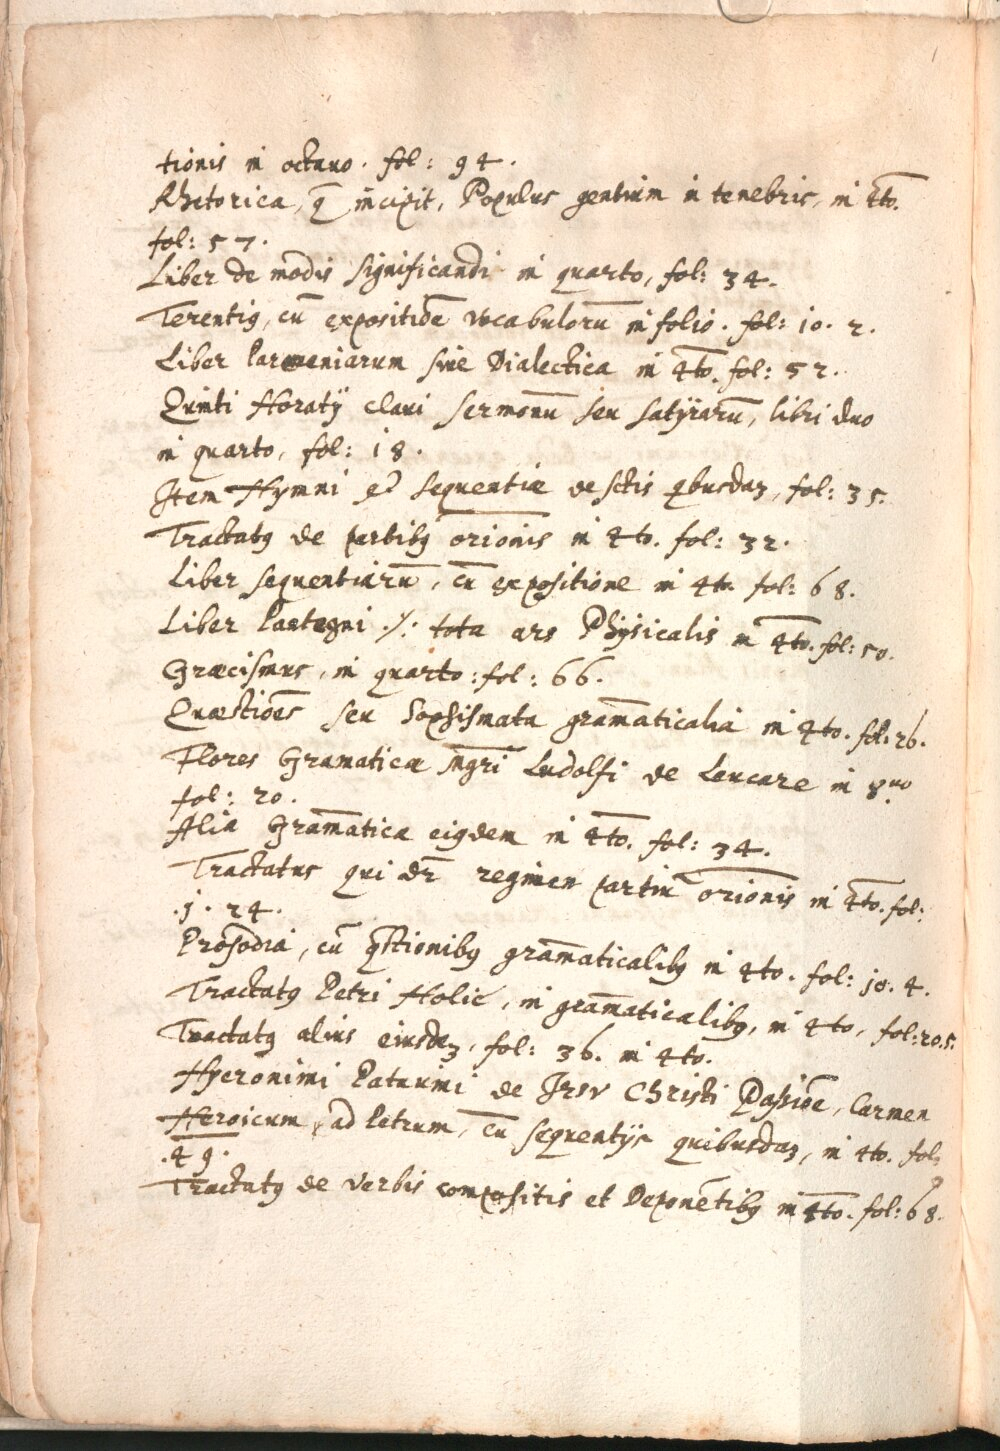 tionis in octauo. fol: 94.
Rhetorica, q̄ incipit, Populus gentium in tenebris, in 4to.
fol: 57.
Liber de modis significandi in quarto, fol: 34.
Terentiꝯ, cū expositiōe vocabulorū in folio. fol: 10. 2.
Liber Parmeniarum siue Dialectica in 4to. fol: 52.
Quinti Horatij clari sermonū seu satyrarū, libri duo
in quarto, fol: 18.
Item Hymni et sequentiæ de sctis qbusdaz, fol: 35.
Tractatꝯ de partibꝯ or̄ionis in 4to. fol: 32.
Liber sequentiarū, cū expositione in 4to. fol: 68.
Liber Pantegni ·/· tota ars Physicalis in 4to. fol: 50.
Græcismus, in quarto: fol: 66.
Quæstiōes seu Sophismata gram̄aticalia in 4to. fol: 26.
Flores Gramaticæ Mgr̄i Ludolfi de Leucare in 8.uo
fol: 20.
Alia Gram̄atica eiꝯdem in 4to. fol: 34.
Tractatus qui dr̄ regimen partiū or̄ionis in 4to. fol:
.j. 24.
Prosodia, cū q̄stionibꝯ gram̄aticalibꝯ in 4to. fol: 10. 4.
Tractatꝯ Petri Holic, in gram̄aticalibꝯ, in 4to, fol: 20.5.
Tractatꝯ alius eiusdez, fol: 36. in 4to.
Hyeronimi Patauini de Jesv Christi Passiōe, Carmen
Heroicum, ad Petrum, cū sequentijs quibusdaz, in 4to. fol:
.49.
Tractatꝯ de verbis compositis et Deponētibꝯ in 4to. fol: 68.